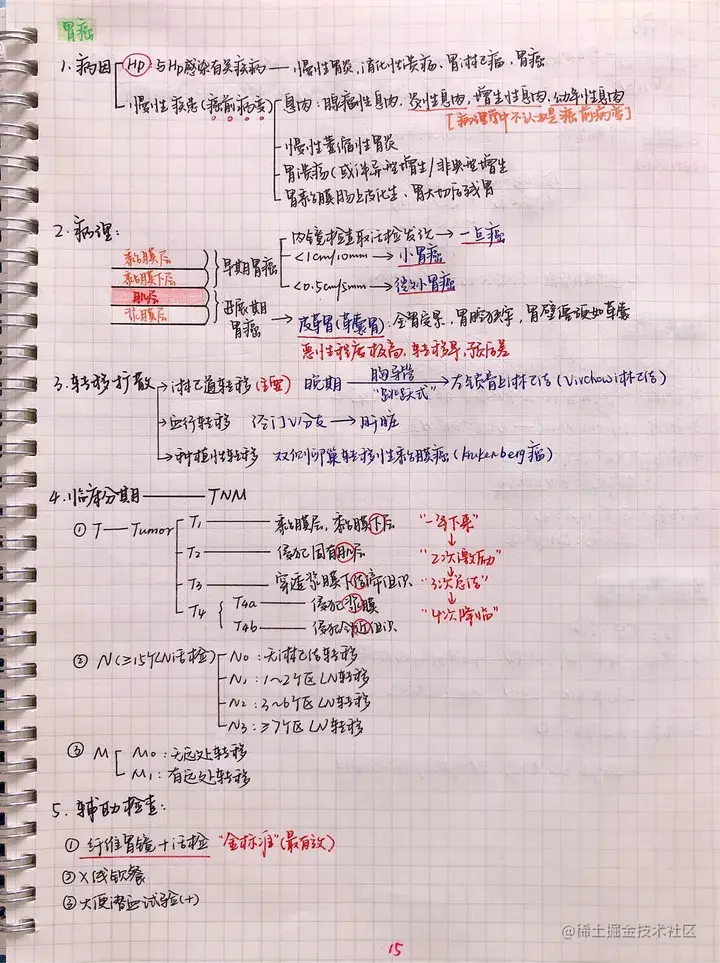 胃癌
1. 病因 HP: 与HP感染有关疾病 — 慢性胃炎, 消化性溃疡, 胃淋巴瘤, 胃癌
慢性疾患(癌前病变) 息肉: 腺瘤性息肉, 炎性息肉, 增生性息肉, 幼年性息肉
[病理学中不认为是癌前病变]
慢性萎缩性胃炎
胃溃疡(或伴异型增生/非典型增生
胃黏膜肠上皮化生, 胃大切后残胃
2. 病理:
内镜检查取活检发现 → 一点癌
黏膜层
黏膜下层 早期胃癌 <1cm/10mm → 小胃癌
肌层 <0.5cm/5mm → 微小胃癌
浆膜层 进展期胃癌 → 皮革胃(革囊胃): 全胃受累, 胃腔狭窄, 胃壁僵硬如革囊
恶性程度极高, 转移早, 预后差
3. 转移扩散 → 淋巴道转移(主要) 晚期 胸导管 "跳跃式" → 左锁骨上淋巴结(Virchow淋巴结)
→ 血行转移 经门V分支 → 肝脏
→ 种植性转移 双侧卵巢转移性黏膜癌(Kukenberg瘤)
4. 临床分期 — TNM
① T — Tumor T1 — 黏膜层, 黏膜下层 "一举下来"
T2 — 侵犯固有肌层 "2次激励"
T3 — 穿透浆膜下结缔组织 "3次总结"
T4 T4a — 侵犯浆膜
T4b — 侵犯邻近组织 "4次降临"
② N(≥15个LN活检) N0: 无淋巴结转移
N1: 1~2个区LN转移
N2: 3~6个区LN转移
N3: ≥7个区LN转移
③ M M0: 无远处转移
M1: 有远处转移
5. 辅助检查:
① 纤维胃镜+活检 "金标准"(最有效)
② X线钡餐
③ 大便潜血试验(+)
15
@稀土掘金技术社区